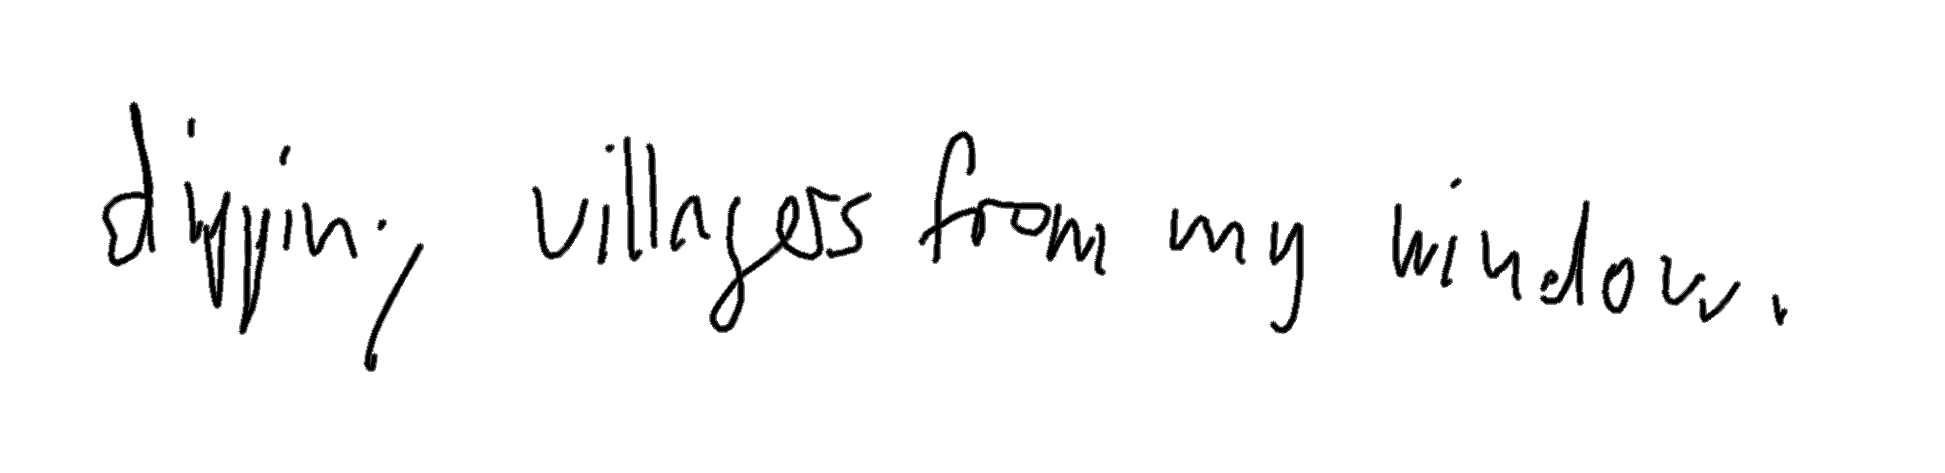 dippin, villagers from my window.